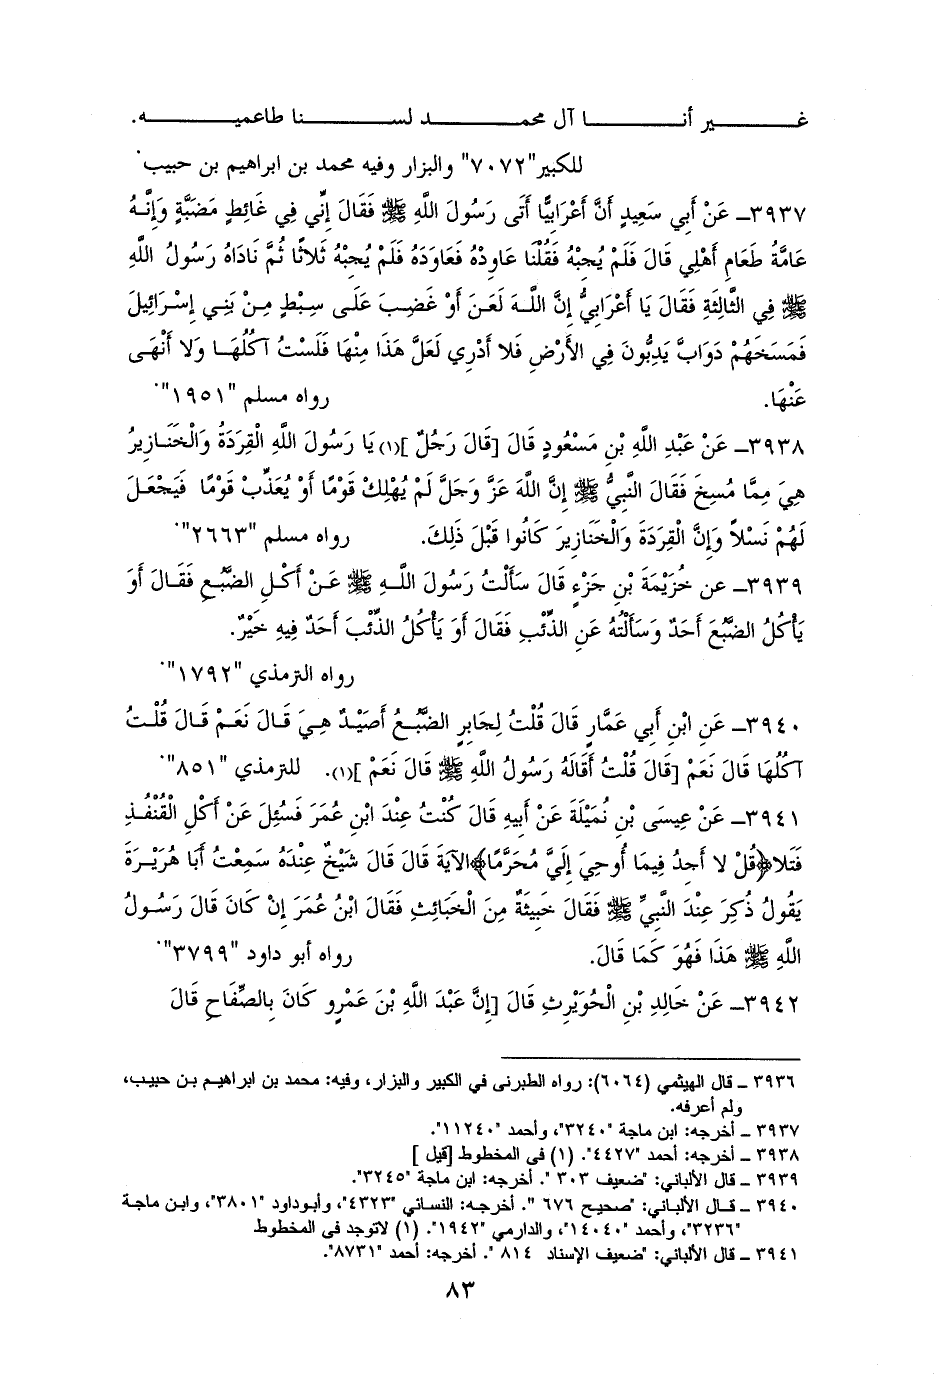 غير أنا آل محمد لسنا طاعميه.
للكبير"٧٠٧٢" والبزار وفيه محمد بن ابراهيم بن حبيب.
٣٩٣٧ـ عَنْ أَبِي سَعِيدٍ أَنَّ أَعْرَابِيًّا أَتَى رَسُولَ اللَّهِ ﷺ فَقَالَ إِنِّي فِي غَائِطٍ مَضَبَّةٍ وَإِنَّهُ
عَامَّةُ طَعَامِ أَهْلِي قَالَ فَلَمْ يُجِبْهُ فَقُلْنَا عَاوِدْهُ فَعَاوَدَهُ فَلَمْ يُجِبْهُ ثَلاثًا ثُمَّ نَادَاهُ رَسُولُ اللَّهِ
ﷺ فِي الثَّالِثَةِ فَقَالَ يَا أَعْرَابِيُّ إِنَّ اللَّهَ لَعَنَ أَوْ غَضِبَ عَلَى سِبْطٍ مِنْ بَنِي إِسْرَائِيلَ
فَمَسَخَهُمْ دَوَابَّ يَدِبُّونَ فِي الأَرْضِ فَلا أَدْرِي لَعَلَّ هَذَا مِنْهَا فَلَسْتُ آكُلُهَا وَلا أَنْهَى
عَنْهَا. رواه مسلم "١٩٥١".
٣٩٣٨ـ عَنْ عَبْدِ اللَّهِ بْنِ مَسْعُودٍ قَالَ [قَالَ رَجُلٌ ](١) يَا رَسُولَ اللَّهِ الْقِرَدَةُ وَالْخَنَازِيرُ
هِيَ مِمَّا مُسِخَ فَقَالَ النَّبِيُّ ﷺ إِنَّ اللَّهَ عَزَّ وَجَلَّ لَمْ يُهْلِكْ قَوْمًا أَوْ يُعَذِّبْ قَوْمًا فَيَجْعَلَ
لَهُمْ نَسْلاً وَإِنَّ الْقِرَدَةَ وَالْخَنَازِيرَ كَانُوا قَبْلَ ذَلِكَ. رواه مسلم "٢٦٦٣".
٣٩٣٩ـ عن خُزَيْمَةَ بْنِ جَزْءٍ قَالَ سَأَلْتُ رَسُولَ اللَّهِ ﷺ عَنْ أَكْلِ الضَّبُعِ فَقَالَ أَوَ
يَأْكُلُ الضَّبُعَ أَحَدٌ وَسَأَلْتُهُ عَنِ الذِّئْبِ فَقَالَ أَوَ يَأْكُلُ الذِّئْبَ أَحَدٌ فِيهِ خَيْرٌ.
رواه الترمذي "١٧٩٢".
٣٩٤٠ـ عَنِ ابْنِ أَبِي عَمَّارٍ قَالَ قُلْتُ لِجَابِرٍ الضَّبُعُ أَصَيْدٌ هِيَ قَالَ نَعَمْ قَالَ قُلْتُ
آكُلُهَا قَالَ نَعَمْ [قَالَ قُلْتُ أَقَالَهُ رَسُولُ اللَّهِ ﷺ قَالَ نَعَمْ ](١). للترمذي "٨٥١".
٣٩٤١ـ عَنْ عِيسَى بْنِ نُمَيْلَةَ عَنْ أَبِيهِ قَالَ كُنْتُ عِنْدَ ابْنِ عُمَرَ فَسُئِلَ عَنْ أَكْلِ الْقُنْفُذِ
فَتَلا﴿قُلْ لا أَجِدُ فِيمَا أُوحِيَ إِلَيَّ مُحَرَّمًا﴾الآيَةَ قَالَ قَالَ شَيْخٌ عِنْدَهُ سَمِعْتُ أَبَا هُرَيْرَةَ
يَقُولُ ذُكِرَ عِنْدَ النَّبِيِّ ﷺ فَقَالَ خَبِيثَةٌ مِنَ الْخَبَائِثِ فَقَالَ ابْنُ عُمَرَ إِنْ كَانَ قَالَ رَسُولُ
اللَّهِ ﷺ هَذَا فَهُوَ كَمَا قَالَ. رواه أبو داود "٣٧٩٩".
٣٩٤٢ـ عَنْ خَالِدِ بْنِ الْحُوَيْرِثِ قَالَ [إِنَّ عَبْدَ اللَّهِ بْنَ عَمْرٍو كَانَ بِالصِّفَاحِ قَالَ
٣٩٣٦ ـ قال الهيثمي (٦٠٦٤): رواه الطبرنى في الكبير والبزار، وفيه: محمد بن ابراهيم بن حبيب،
ولم أعرفه.
٣٩٣٧ ـ أخرجه: ابن ماجة "٣٢٤٠"، وأحمد "١١٢٤٠".
٣٩٣٨ ـ أخرجه: أحمد "٤٤٢٧". (١) فى المخطوط [قيل ]
٣٩٣٩ ـ قال الألباني: "ضعيف ٣٠٣ ". أخرجه: ابن ماجة "٣٢٤٥".
٣٩٤٠ ـ قال الألباني: "صحيح ٦٧٦ ". أخرجه: النسائي "٤٣٢٣"، وأبوداود "٣٨٠١"، وابن ماجة
"٣٢٣٦"، وأحمد "١٤٠٤٠"، والدارمي "١٩٤٢". (١) لاتوجد فى المخطوط
٣٩٤١ ـ قال الألباني: "ضعيف الإسناد ٨١٤ ". أخرجه: أحمد "٨٧٣١".
٨٣